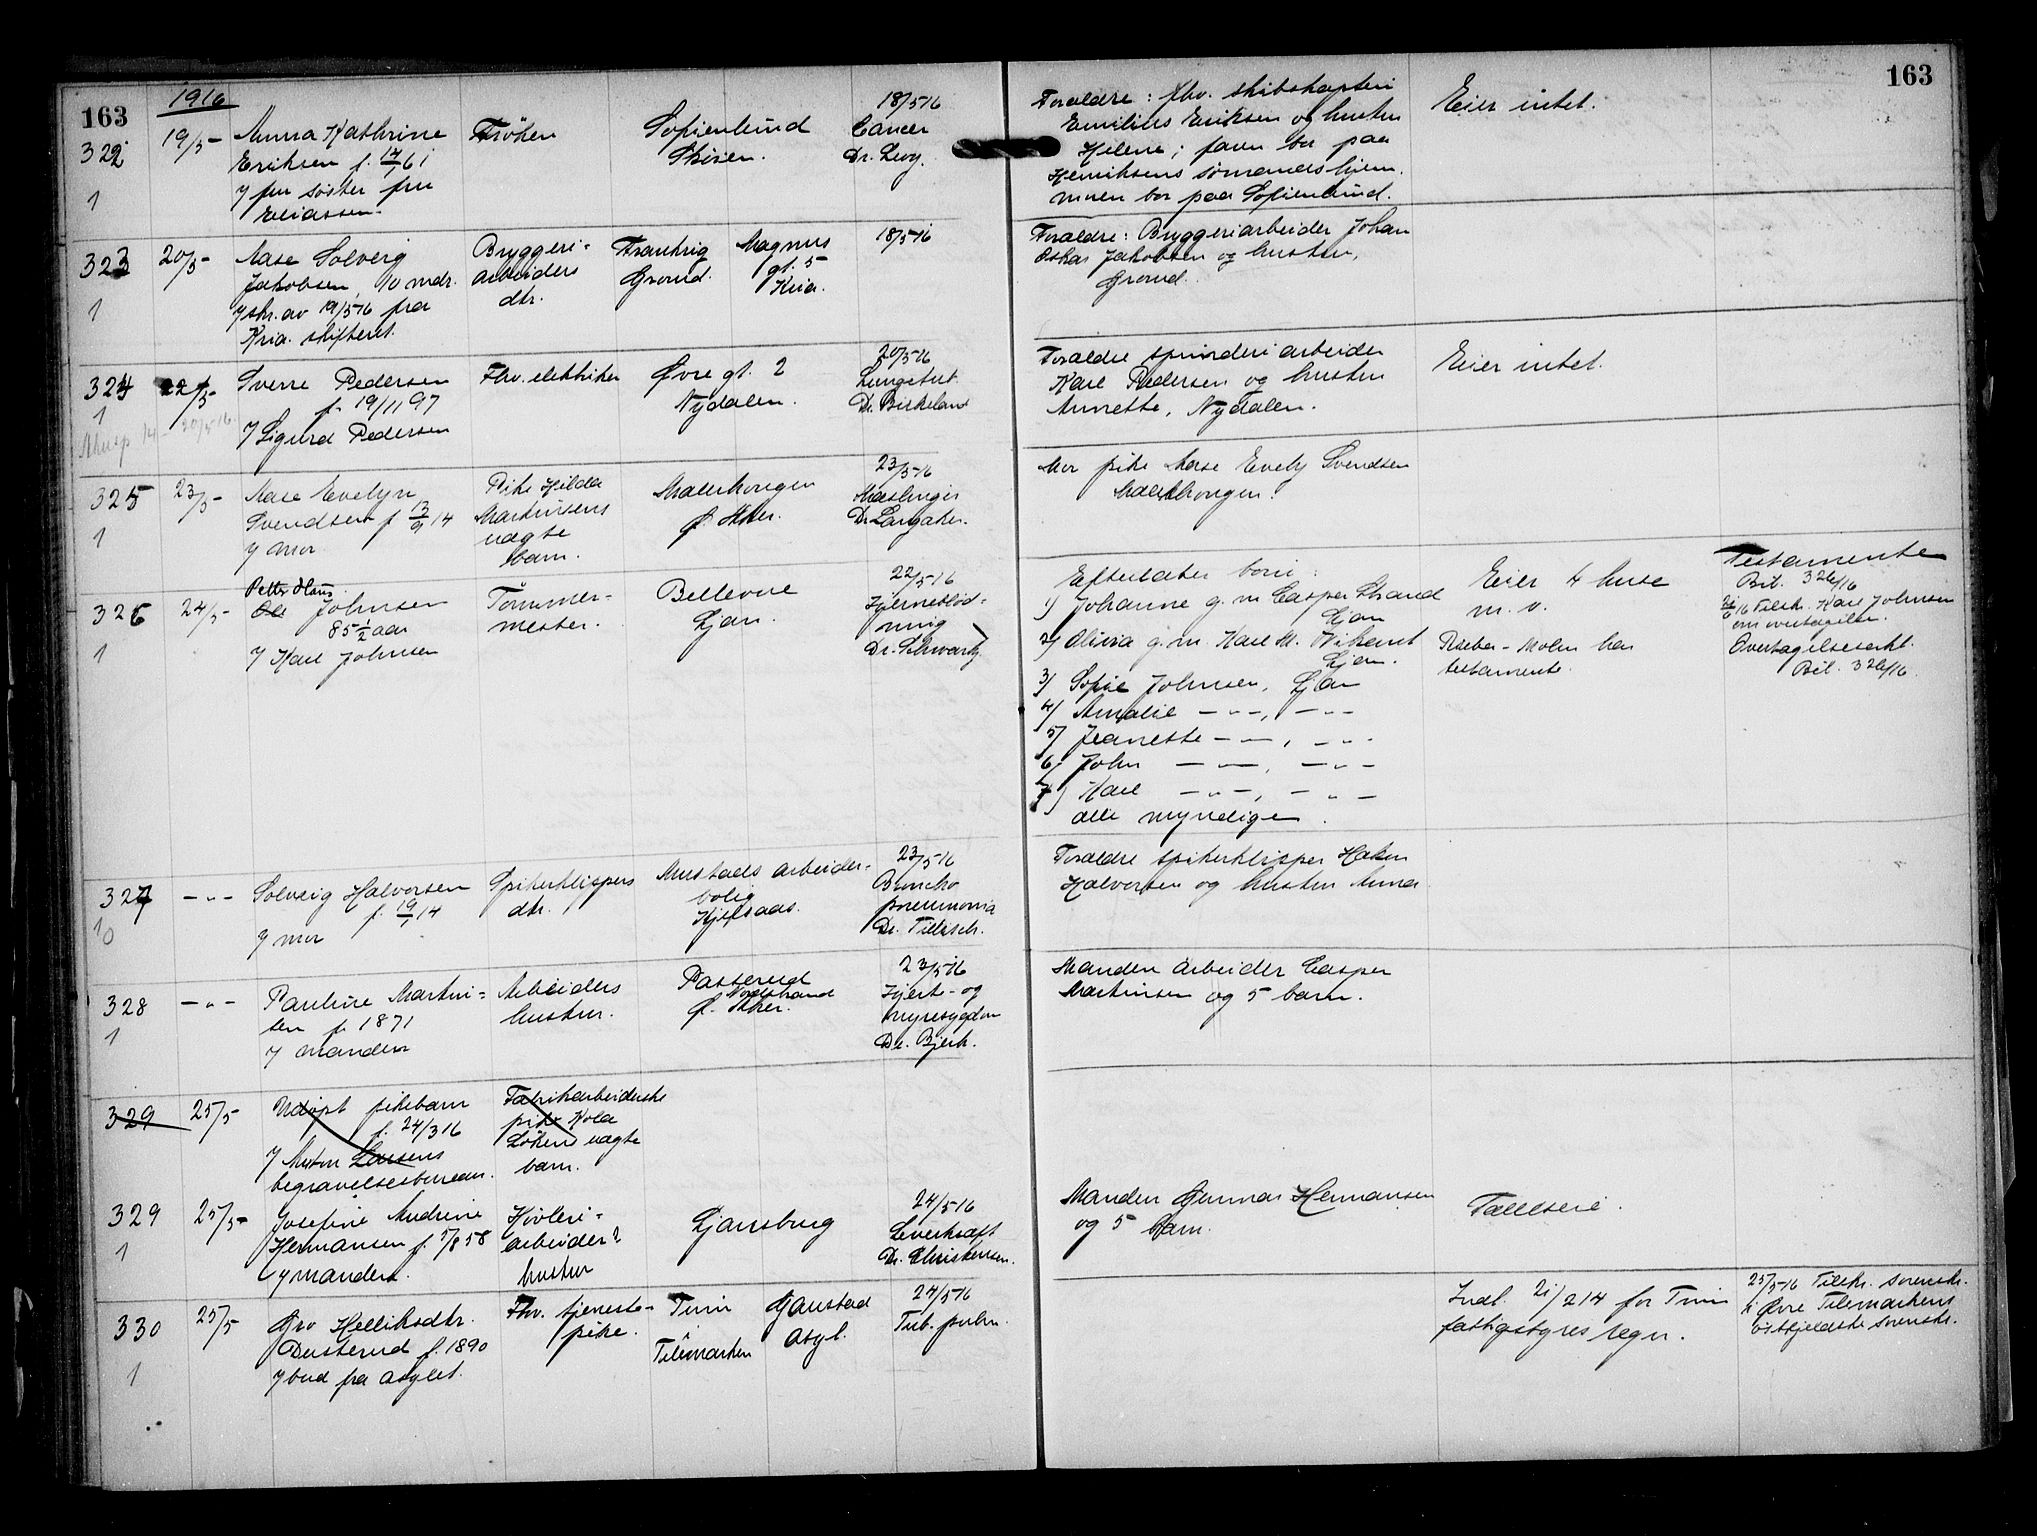 163
1916
163
322
1
19/5-
Anna Kathrine
Eriksen f. 17/1 61
v/ fru søster fru
Eliassen.
Frøken
Sofienlund
Skøien.
18/5 16
Cancer
Dr. Levy.
Foraldre: fhv. skibskaptein
Emilius Eriksen og hustru
Helene; faren bor paa
Henriksens sømandshjem.
moren bor paa Sofienlund.
Eier intet.
323
1
20/5-
Aase Solveig
Jakobsen, 10 mdr.
v/ skr. av 19/5 16 fra
Kria. skifteret.
Bryggeri-
arbeiders
dtr.
Frankrig
Grorud.
Magnus
gt. 5
Kria.
18/5 16
Foraldre: Bryggeriarbeider Johan
Oskar Jakobsen og hustru,
Grorud.
324
1
22/5-
20/5 16.
Sverre Pedersen
f. 19/11 97
v/ Sigurd Pedersen
Fhv. elektriker
Øvre gt. 2
Nydalen.
20/5 16
Lungetub.
Dr. Birkeland
Foraldre spinderiarbeider
Karl Pedersen og hustru
Annette, Nydalen.
Eier intet.
325
1
23/5-
Aase Evelyn
Svendsen f. 13/9 14
v/ mor
Pike Hilda
Martinsens
uægte
barn.
Malerhaugen
Ø. Aker.
23/5 16
Mæslinger
Dr. Langaker.
Mor pike Aase Evely Svendsen
Malerhaugen.
326
1
24/5-
Petter Hans
Ole Johnsen
85 1/2 aar
v/ Karl Johnsen
Tømmer-
mester.
Bellevue
Ljan.
22/5 16
Hjerneblød-
ning
Dr. Schwartz
Efterlater barn:
1) Johanne g. m. Casper Strand
Ljan
2) Olivia g. m. Karl M. Wikant
Ljan.
3) Sofie Johnsen, Ljan
4) Amalie — " —, — " —
5) Jeanette — " —, — " —
6) John — " —, — " —
7) Karl — " —, — " —
alle myndige.
Eier 4 huse
m. v.
Reeber-Molen har
testamente.
Testamente
Bil. 326/16
16 Tilsk. Karl Johnsen
om overtagelse.
Overtagelseserkl.
Bil. 326/16
327
10
— " —
Solveig Halvorsen
f. 19/1 14
v/ mor
Spikerklippers
dtr.
Mustads arbeider-
bolig
Kjelsaas.
23/5 16
Buncho
pneumonia
Dr. Tillisch.
Foraldre spikerklipper Haken
Halvorsen og hustru Anna
328
1
— " —
Pauline Martin-
sen f. 1871
v/ manden
Arbeiders
hustru.
Pasterud
Nordstrand
Ø. Aker.
23/5 16
Hjerte- og
nyresygdom
Dr. Bjerk.
Manden arbeider Casper
Martinsen og 5 barn.
329
25/5-
Udøpt pikebarn
f. 24/3 16
v/ Larsens
begravelsesbureau.
Fabrikarbeiderske
pike
Løkens uægte
barn.
329
1
25/5-
Josefine Andrine
Hermansen f. 5/8 58
v/ manden.
Høvleri-
arbeiders
hustru
Ljansbrug
24/5 16
Leverkræft
Dr. Christensen.
Manden Gunnar Hermansen
og 5 barn.
Fælleseie.
330
1
25/5
Gro Helliksdtr.
Dusterud f. 1890
v/ bud fra asylet.
Fhv. tjeneste-
pike.
Tinn
i
Telemarken
Gaustad
asyl.
24/5 16
Tub. pulm.
Indl. 21/214 for Tinn
fattigstyres regn.
25/5 16 Tilskr. sorenskr.
i Øvre Telemarkens
østfjeldske sorenskr.